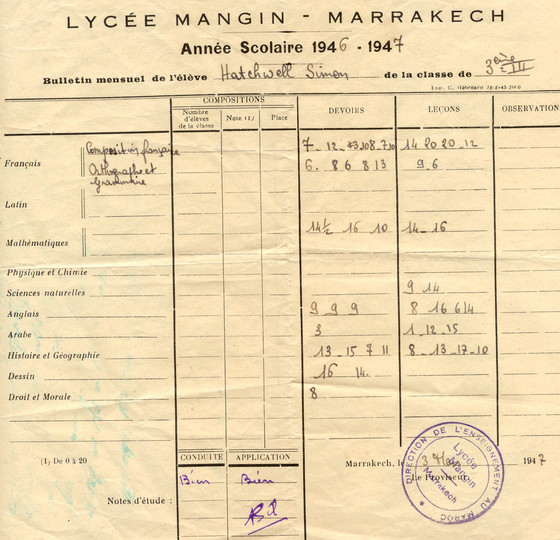 LYCÉE MANGIN - MARRAKECH
Année Scolaire 1946 - 1947
Bulletin mensuel de l'élève Hatchwell Simon de la classe de 3ème III
COMPOSITIONS
Nombre d'élèves de la classe Note (1) Place DEVOIRS LEÇONS OBSERVATION
Français Composition française 7 - 12 - 14 20 20 - 12
Orthographe et Grammaire 6. 8 6 8 13 9 6
Latin
Mathématiques 14½ 16 10 14 - 16
Physique et Chimie
Sciences naturelles 9 14
Anglais 9 9 9 8 16 6 14
Arabe 3 1 - 12 - 15
Histoire et Géographie 13 - 15 7 11 8 - 13 - 17 - 10
Dessin 16 14.
Droit et Morale 8
(1) De 0 à 20
CONDUITE APPLICATION
Marrakech, le 3 1947
Le Proviseur
Notes d'étude : Bien Bien
DIRECTION DE L'ENSEIGNEMENT AU MAROC
Lycée Mangin Marrakech